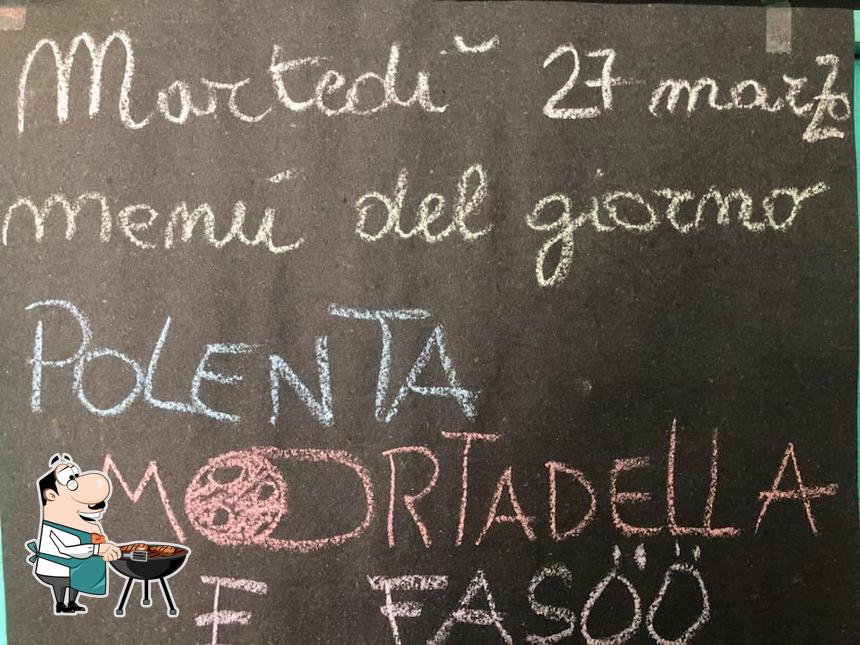 Martedì 27 marzo
menú del giorno
POLENTA
MORTADELLA
E FASÖÖ